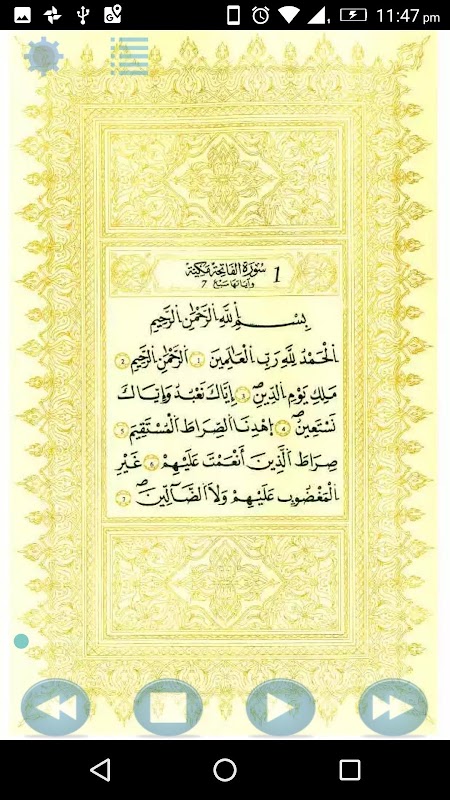 11:47 pm
1 سُورَةُ الفَاتِحَة مَكِيَّة
وآيَاتهَا سَبْع 7
بِسْمِ اللَّهِ الرَّحْمَٰنِ الرَّحِيمِ
الْحَمْدُ لِلَّهِ رَبِّ الْعَالَمِينَ 1 الرَّحْمَٰنِ الرَّحِيمِ 2
مَلِكِ يَوْمِ الدِّينِۖ 3 إِيَّاكَ نَعْبُدُ وَإِيَّاكَ
نَسْتَعِينُۖ 4 اِهْدِنَا الصِّرَاطَ الْمُسْتَقِيمَ 5
صِرَاطَ الَّذِينَ أَنْعَمْتَ عَلَيْهِمْ 6 غَيْرِ
الْمَغْضُوبِ عَلَيْهِمْ وَلَا الضَّالِّينَۖ 7